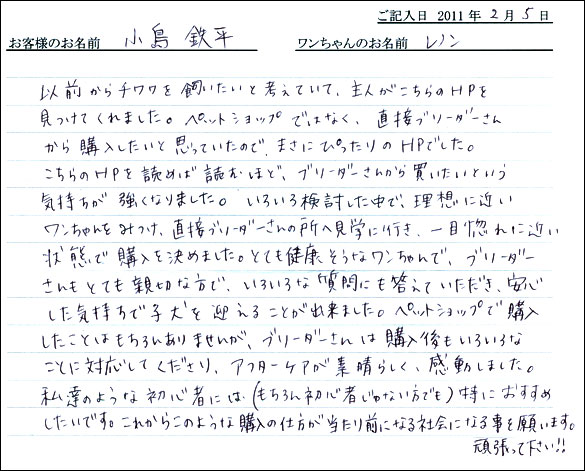 ご記入日 2011年2月5日
お客様のお名前 小島 鉄平 ワンちゃんのお名前 レノン
以前からチワワを飼いたいと考えていて、主人がこちらのHPを
見つけてくれました。ペットショップではなく、直接ブリーダーさん
から購入したいと思っていたので、まさにぴったりのHPでした。
こちらのHPを読めば読むほど、ブリーダーさんから買いたいという
気持ちが強くなりました。いろいろ検討した中で、理想に近い
ワンちゃんをみつけ、直接ブリーダーさんの所へ見学に行き、一目惚れに近い
状態で購入を決めました。とても健康そうなワンちゃんで、ブリーダー
さんもとても親切な方で、いろいろな質問にも答えていただき、安心
した気持ちで子犬を迎えることが出来ました。ペットショップで購入
したことはもちろんありませんが、ブリーダーさんは購入後もいろいろな
ことに対応してくださり、アフターケアが素晴らしく、感動しました。
私達のような初心者には(もちろん初心者じゃない方でも)特におすすめ
したいです。これからこのような購入の仕方が当たり前になる社会になる事を願います。
頑張って下さい!!